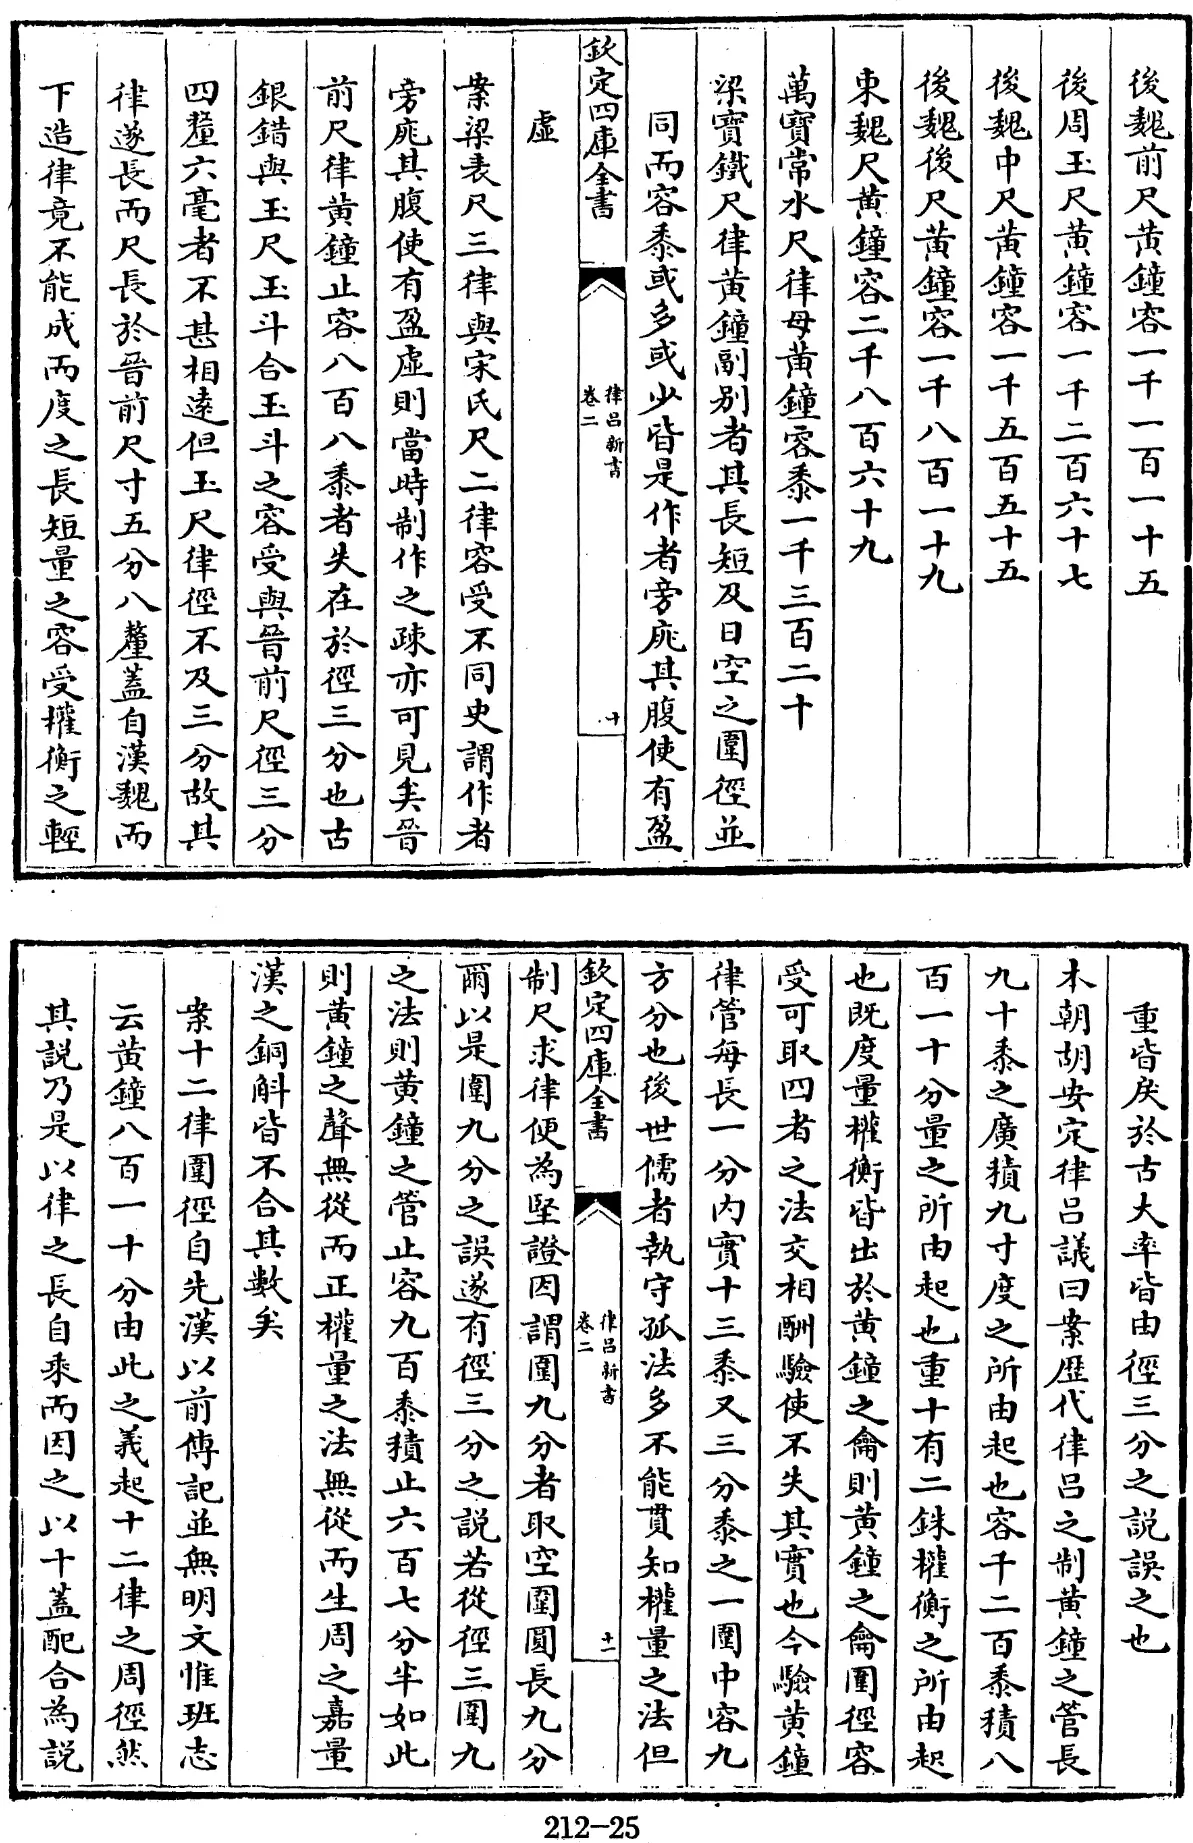 後魏前尺黄鐘容一千一百一十五
後周玉尺黄鐘容一千二百六十七
後魏中尺黄鐘容一千五百五十五
後魏後尺黄鐘容一千八百一十九
東魏尺黄鐘容二千八百六十九
萬寶常水尺律母黄鐘容黍一千三百二十
梁寶鐵尺律黄鐘副别者其長短及日空之圍徑並
同而容黍或多或少皆是作者旁庣其腹使有盈
欽定四庫全書
律吕新書
卷二
十
虚
案梁表尺三律與宋氏尺二律容受不同史謂作者
旁庣其腹使有盈虚則當時制作之疎亦可見矣晉
前尺律黄鐘止容八百八黍者失在於徑三分也古
銀錯與玉尺玉斗合玉斗之容受與晉前尺徑三分
四釐六毫者不甚相逺但玉尺律徑不及三分故其
律遂長而尺長於晉前尺寸五分八釐蓋自漢魏而
下造律竟不能成而度之長短量之容受權衡之輕
重皆戾於古大率皆由徑三分之説誤之也
本朝胡安定律吕議曰案歴代律吕之制黄鐘之管長
九十黍之廣積九寸度之所由起也容千二百黍積八
百一十分量之所由起也重十有二銖權衡之所由起
也既度量權衡皆出於黄鐘之龠則黄鐘之龠圍徑容
受可取四者之法交相酬驗使不失其實也今驗黄鐘
律管每長一分内實十三黍又三分黍之一圍中容九
方分也後世儒者執守孤法多不能貫知權量之法但
欽定四庫全書
律吕新書
卷二
十一
制尺求律便為堅證因謂圍九分者取空圍圓長九分
爾以是圍九分之誤遂有徑三分之説若從徑三圍九
之法則黄鐘之管止容九百黍積止六百七分半如此
則黄鐘之聲無從而正權量之法無從而生周之嘉量
漢之銅斛皆不合其數矣
案十二律圍徑自先漢以前傳記並無明文惟班志
云黄鐘八百一十分由此之義起十二律之周徑然
其説乃是以律之長自乘而因之以十蓋配合為説
212-25